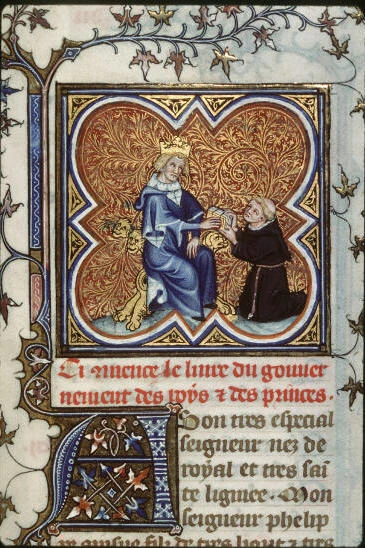 Ci mence le livre du gouver
nement des roys ⁊ des princes.
A Son tres especial
seigneur nez de
royal et tres sai
te lignee. Mon
seigneur phelip
ainsne filz de tres haut ⁊ tres